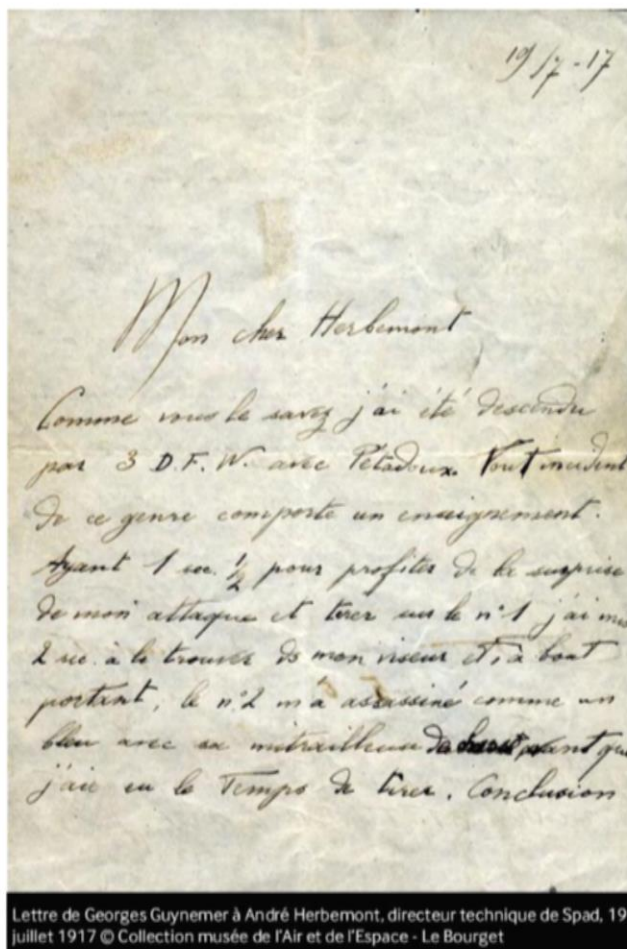 19/7-17
Mon cher Herbemont
Comme vous le savez j'ai été descendu
par 3 D.F.W. avec Pétadoux. Tout incident
de ce genre comporte un enseignement.
Ayant 1 sec. 1/2 pour profiter de la surprise
de mon attaque et tirer sur le n°1 j'ai mis
2 sec. à le trouver ds mon viseur et, à bout
portant, le n°2 m'a assassiné comme un
bleu avec sa mitrailleuse avant que
j'aie eu le Temps de tirer. Conclusion
Lettre de Georges Guynemer à André Herbemont, directeur technique de Spad, 19
juillet 1917 © Collection musée de l'Air et de l'Espace - Le Bourget